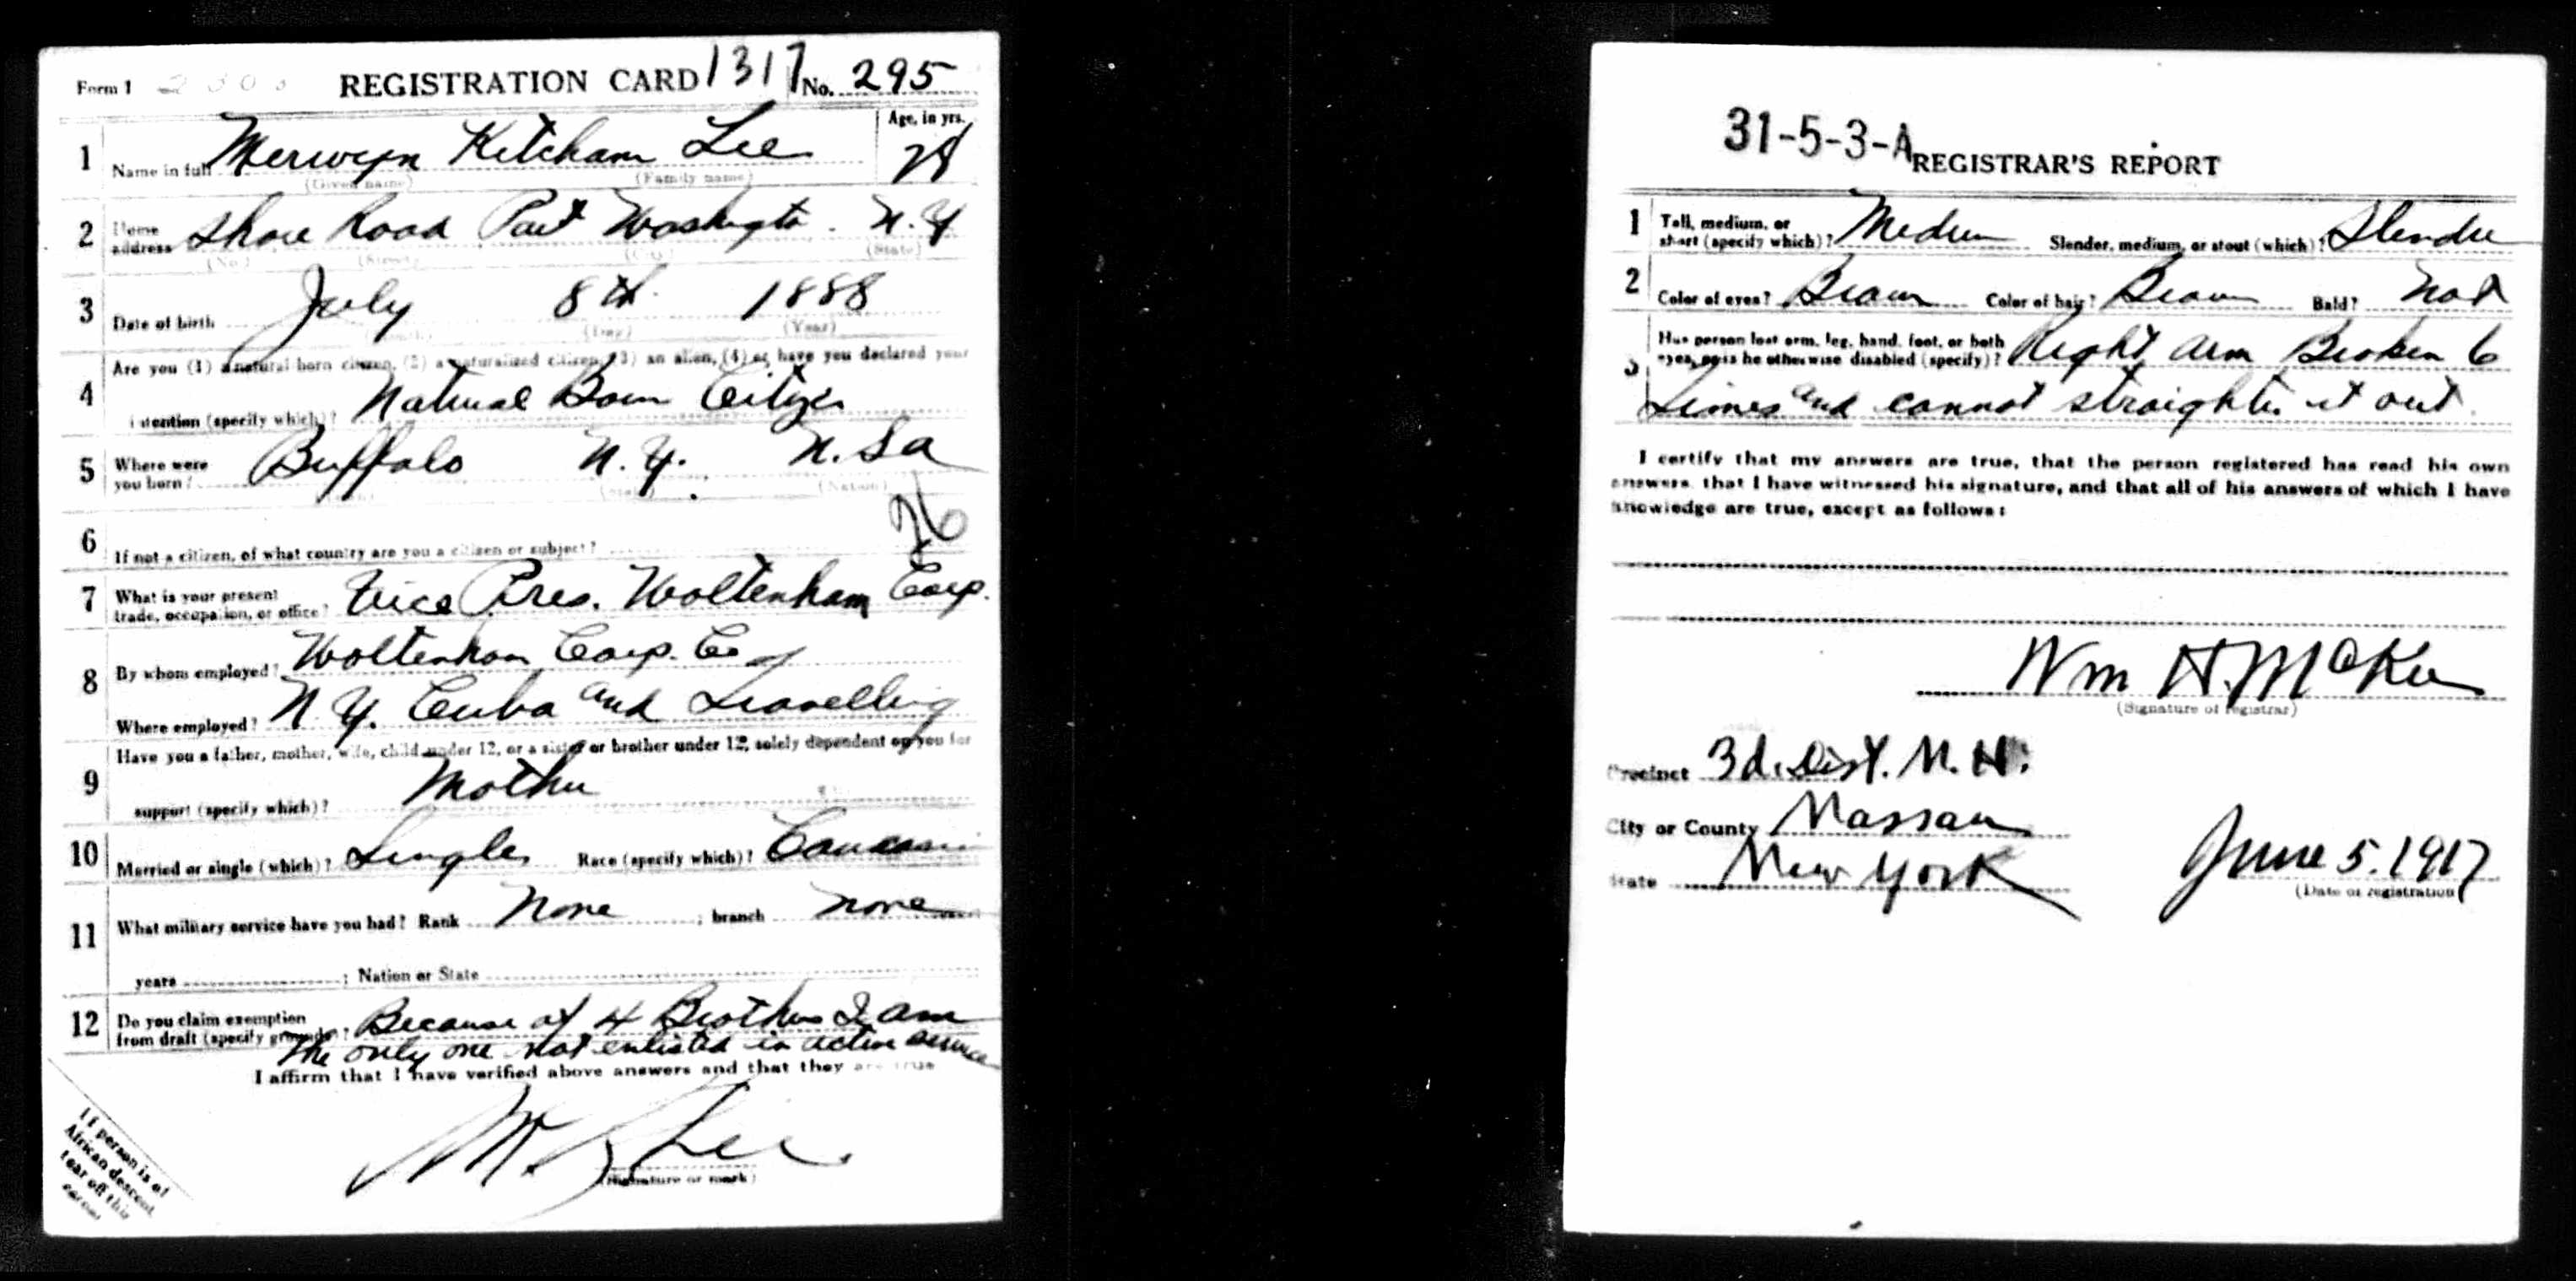 Form 1 REGISTRATION CARD 1317 No. 295
1 Name in full Merwyn Ketcham Lee Age, in yrs. 28
(Given name) (Family name)
2 Home address Shore Road Port Washingto. N.Y
(No.) (Street) (City) (State)
3 Date of birth July 8th 1888
(Day) (Year)
Are you (1) a natural born citizen, (2) a naturalized citizen, (3) an alien, (4) or have you declared your
4 intention (specify which)? Natural Born Citizen
5 Where were you born? Buffalo N.Y. U.Sa
(Nation)
26
6 If not a citizen, of what country are you a citizen or subject?
7 What is your present trade, occupation, or office? Vice Pres. Woltenham Corp.
8 By whom employed? Woltenham Corp. Co of
Where employed? N.Y. Cuba and Travelling
Have you a father, mother, wife, child under 12, or a sister or brother under 12, solely dependent on you for
9 support (specify which)? Mother
10 Married or single (which)? Single Race (specify which)? Caucasian
11 What military service have you had? Rank None ; branch none
years ; Nation or State
12 Do you claim exemption from draft (specify grounds)? Because of 4 Brothers I am
the only one not enlisted in active service
I affirm that I have verified above answers and that they are true
M. K Lee
(Signature or mark)
If person is of
African descent
tear off this
corner
31-5-3-A REGISTRAR'S REPORT
1 Tall, medium, or short (specify which)? Medium Slender, medium, or stout (which)? Slender
2 Color of eyes? Brown Color of hair? Brown Bald? Not
3 Has person lost arm, leg, hand, foot, or both eyes, or is he otherwise disabled (specify)? Right arm Broken 6
times and cannot straighten it out
I certify that my answers are true, that the person registered has read his own
answers, that I have witnessed his signature, and that all of his answers of which I have
knowledge are true, except as follows:
Wm H. McKee
(Signature of registrar)
Precinct 3d. Dist. N. H.
City or County Nassau
State New York June 5. 1917
(Date of registration)